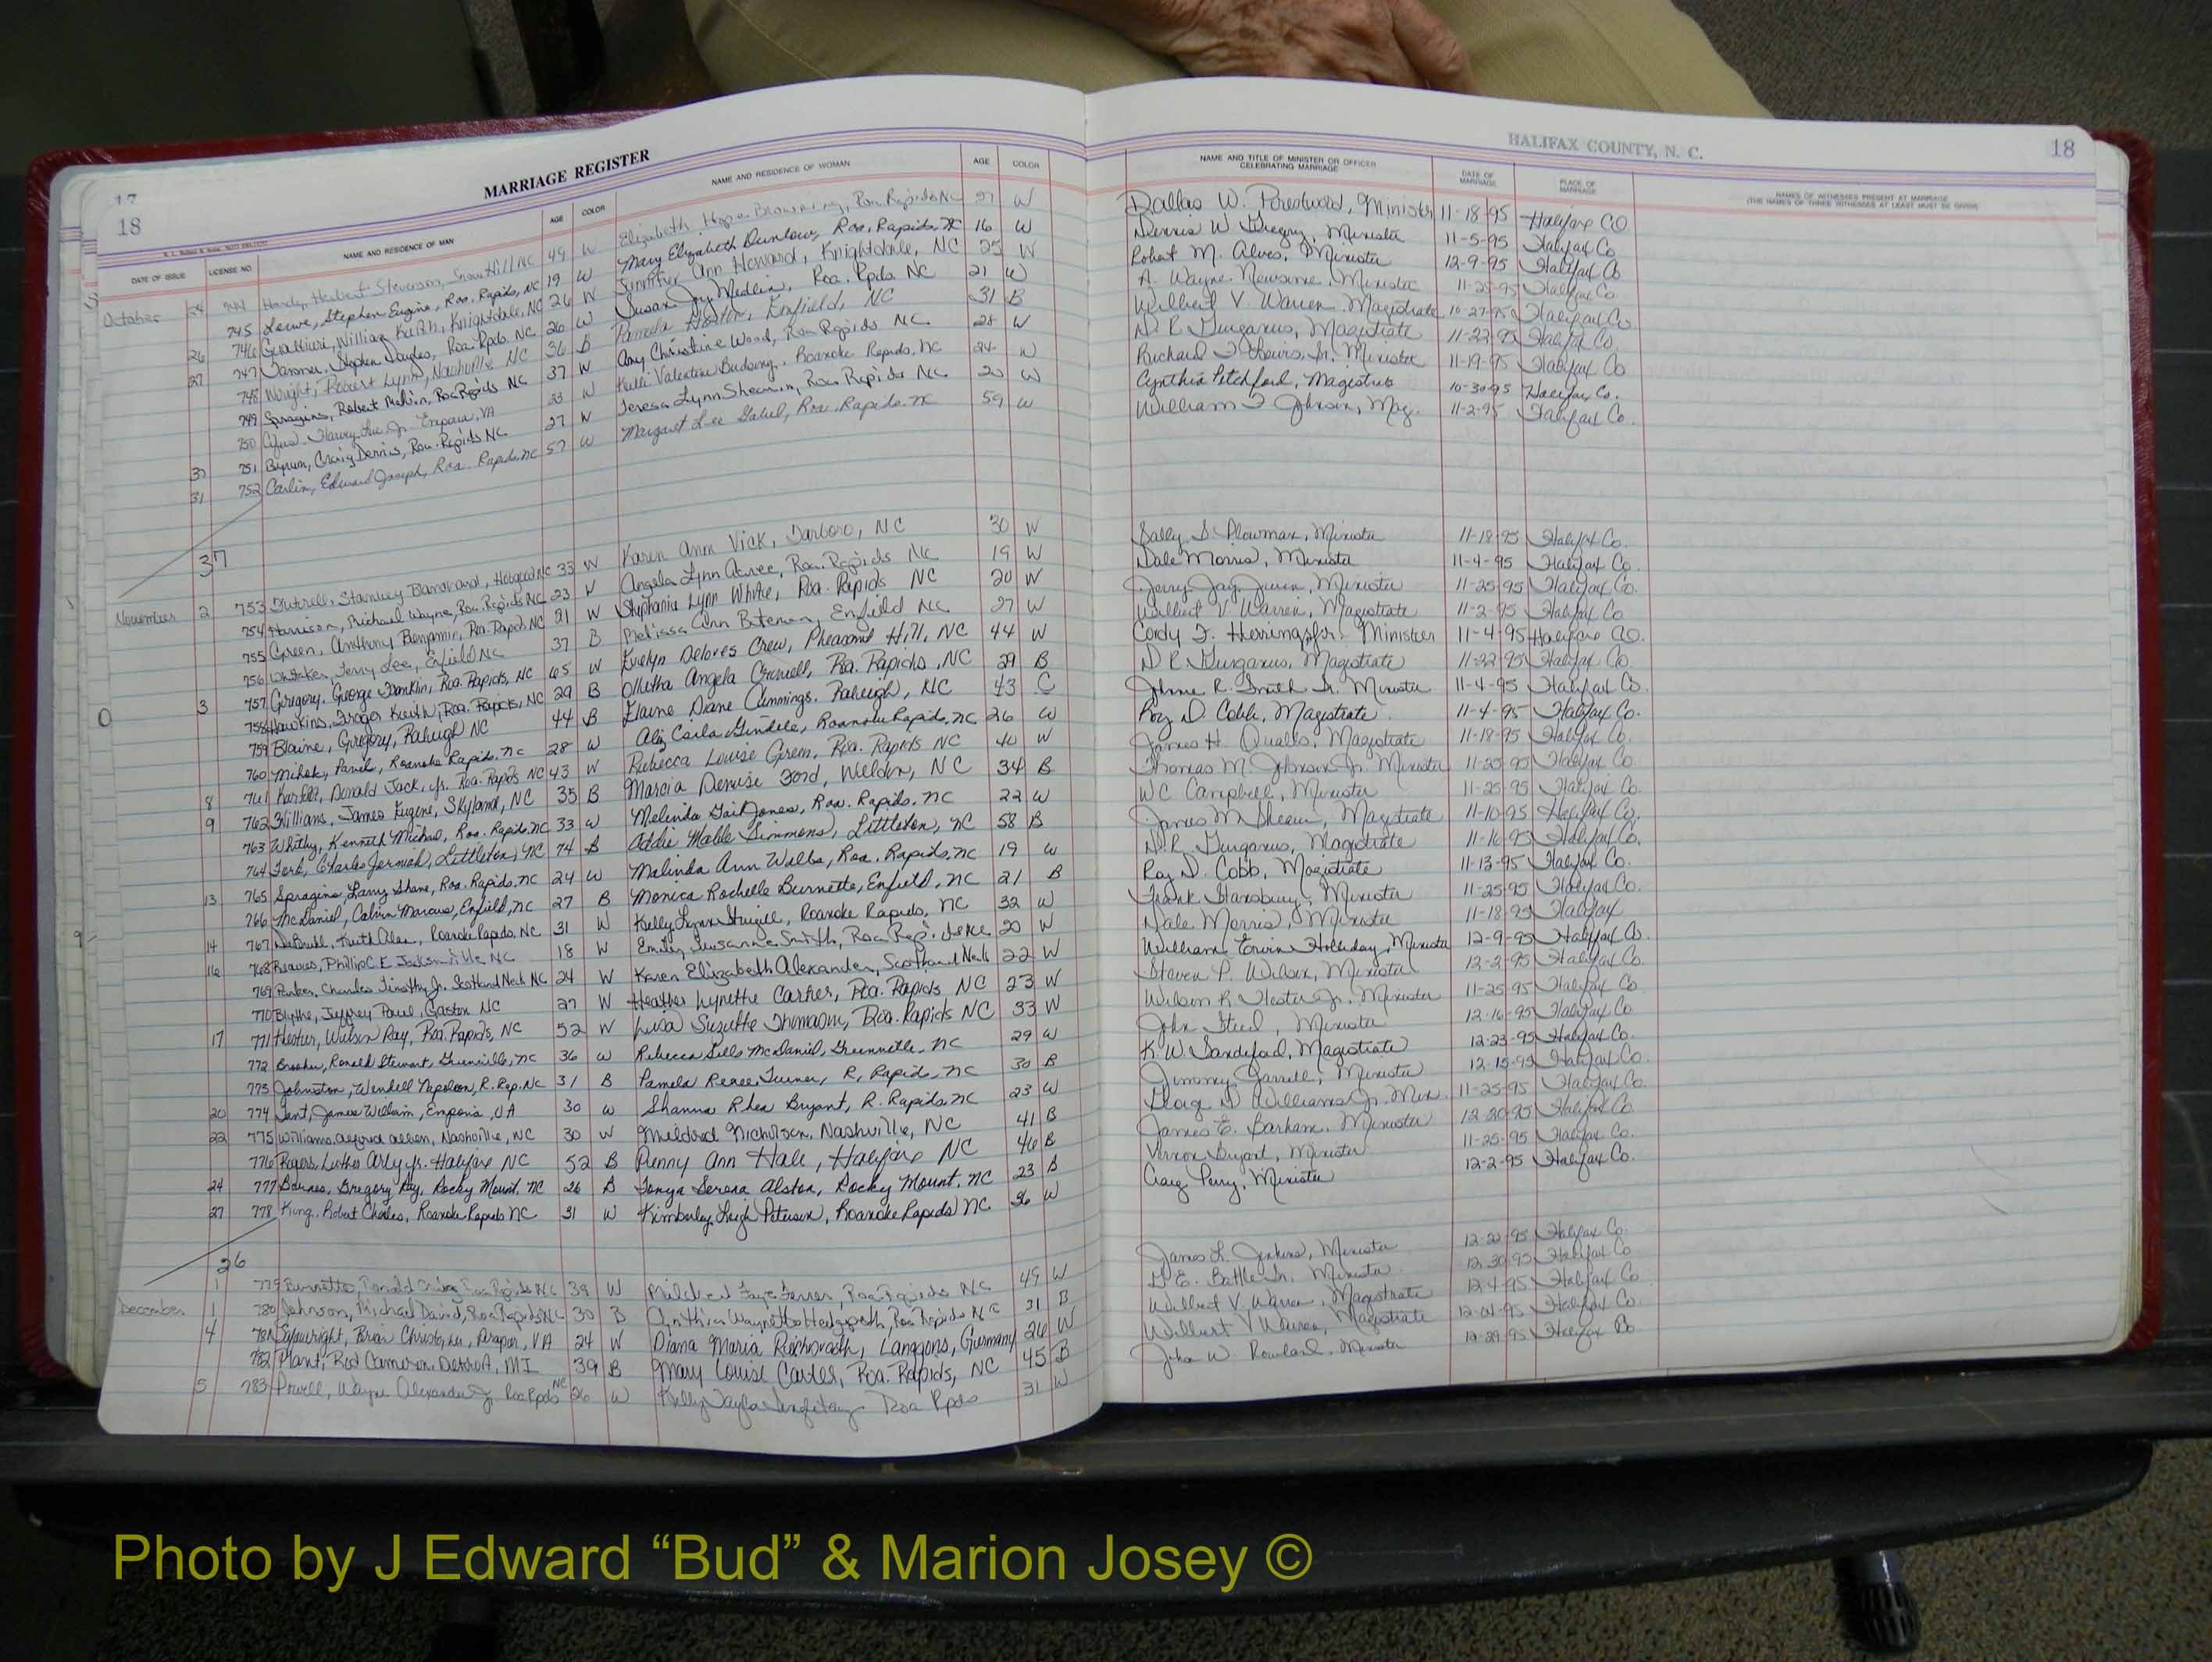 17
18
MARRIAGE REGISTER
HALIFAX COUNTY, N. C.
18
DATE OF ISSUE LICENSE NO. NAME AND RESIDENCE OF MAN AGE COLOR NAME AND RESIDENCE OF WOMAN AGE COLOR NAME AND TITLE OF MINISTER OR OFFICER CELEBRATING MARRIAGE DATE OF MARRIAGE PLACE OF MARRIAGE NAMES OF WITNESSES PRESENT AT MARRIAGE (THE NAMES OF THREE WITNESSES AT LEAST MUST BE GIVEN)
October 24 744 Hardy, Herbert Stevenson, Snow Hill NC 49 W Elizabeth Hope Browning, Roa Rapids NC 27 W Dallas W. Minister 11-18-95 Halifax CO
745 Stephen Eugene, Roa. Rapids, NC 19 W Mary Elizabeth Dunlow, Roa. Rapids, NC 16 W Dennis W Gregory, Minister 11-5-95 Halifax Co
26 746 William Keith, Knightdale, NC 26 W Jennifer Ann Howard, Knightdale, NC 25 W Robert M. Alves, Minister 12-9-95 Halifax Co
27 747 Stephen Douglas, Roa. Rpds. NC 26 W Susan Joy Medlin, Roa. Rpds. NC 21 W A. Wayne Newsome, Minister 11-25-95 Halifax Co.
748 Wright, Robert Lynn, Nashville NC 36 B Pamela Enfield, NC 31 B Wilbert V. Warren Magistrate 10-27-95 Halifax Co.
749 Spragins, Robert Melvin, Roa Rapids NC 37 W Amy Christine Wood, Roa Rapids NC 28 W D R Gurganus, Magistrate 11-22-95 Halifax Co.
750 Harvey Lee Jr. Emporia, VA 33 W Kelli Valentine Roanoke Rapids, NC 24 W Richard Jr. Minister 11-19-95 Halifax Co
30 751 Bynum, Craig Dennis, Roa. Rapids NC 27 W Teresa Lynn Shearin, Roa Rapids NC 20 W Cynthia Pitchford, Magistrate 10-30-95 Halifax Co.
31 752 Carlin, Edward Joseph, Roa. Rapids, NC 57 W Margaret Lee Roa. Rapids. NC 59 W William F Johnson, Mag. 11-2-95 Halifax Co.
37
November 2 753 Futrell, Stanley Hobgood NC 33 W Karen Ann Vick, Tarboro, NC 30 W Sally S. Plowman, Minister 11-18-95 Halifax Co.
754 Harrison, Michael Wayne, Roa Rapids NC 23 W Angela Lynn Acree, Roa. Rapids NC 19 W Dale Morris, Minister 11-4-95 Halifax Co.
755 Green, Anthony Benjamin, Roa. Rapids NC 21 W Stephanie Lynn White, Roa. Rapids NC 20 W Jerry Jay Minister 11-25-95 Halifax Co.
756 Whitaker, Terry Lee, Enfield NC 37 B Melissa Ann Enfield NC 27 W Wilbert V. Warren, Magistrate 11-2-95 Halifax Co
3 757 Gregory, George Franklin, Roa. Rapids, NC 65 W Evelyn Delores Crew, Pleasant Hill, NC 44 W Cordy F. Herring, Jr. Minister 11-4-95 Halifax Co.
758 Hawkins, Keith, Roa. Rapids, NC 29 B Angela Roa. Rapids, NC 29 B D R Gurganus, Magistrate 11-22-95 Halifax Co.
759 Blaine, Gregory, Raleigh NC 44 B Elaine Diane Cummings, Raleigh, NC 43 C R. Smith Sr. Minister 11-4-95 Halifax Co
760 Pavel, Roanoke Rapids. NC 28 W Carla Roanoke Rapids, NC 26 W Roy D. Cobb, Magistrate 11-4-95 Halifax Co.
8 761 Donald Jack, Jr. Roa. Rapids NC 43 W Rebecca Louise Green, Roa. Rapids NC 40 W James H. Qualls, Magistrate 11-18-95 Halifax Co.
9 762 Williams, James Eugene, Skyland, NC 35 B Marcia Denise Ford, Weldon, NC 34 B Thomas M. Johnson Jr. Minister 11-25-95 Halifax Co
763 Whitby, Kenneth Michael, Roa. Rapids, NC 33 W Melinda Gail Jones, Roa. Rapids. NC 22 W WC Campbell, Minister 11-25-95 Halifax Co.
764 Charles Jermiah, Littleton, NC 74 B Addie Mable Simmons, Littleton, NC 58 B James M Shearin, Magistrate 11-10-95 Halifax Co.
13 765 Spragins, Larry Shane, Roa. Rapids, NC 24 W Malinda Ann Roa. Rapids, NC 19 W D.R. Gurganus, Magistrate 11-16-95 Halifax Co.
766 McDaniel, Calvin Marcus, Enfield, NC 27 B Monica Rochelle Burnette, Enfield, NC 21 B Roy D. Cobb, Magistrate 11-13-95 Halifax Co.
14 767 Keith Alan, Roanoke Rapids, NC 31 W Kelly Lynn Roanoke Rapids, NC 32 W Frank Stansbury, Minister 11-25-95 Halifax Co.
16 768 Reaves, Phillip C.E. Jacksonville NC 18 W Emily Susanne Smith, 20 W Dale Morris, Minister 11-18-95 Halifax
769 Parker, Charles Timothy Jr. Scotland Neck NC 24 W Karen Elizabeth Alexander, Scotland Neck 22 W William Ervin Holliday, Minister 12-9-95 Halifax Co.
770 Blythe, Jeffrey Paul, Gaston NC 27 W Heather Lynette Carker, Roa. Rapids NC 23 W Steven P. Wilson, Minister 12-2-95 Halifax Co.
17 771 Hester, Wilson Ray, Roa Rapids, NC 52 W Lisa Suzette Roa. Rapids NC 33 W Wilson R. Hester Jr. Minister 11-25-95 Halifax Co
772 Ronald Stewart, Greenville, NC 36 W Rebecca McDaniel, Greenville, NC 29 W John Minister 12-16-95 Halifax Co
773 Johnston, Wendell Napoleon, R. Rap. NC 31 B Pamela Renee Turner, R. Rapid. NC 30 B K. W. Sandeford, Magistrate 12-23-95 Halifax Co.
20 774 James William, Emporia, VA 30 W Shanna Rhea Bryant, R. Rapids, NC 23 W Jimmy Jarrell, Minister 12-15-95 Halifax Co.
22 775 Williams, Allen, Nashville, NC 30 W Mildred Nicholson, Nashville, NC 41 B Williams Jr. Min. 11-25-95 Halifax Co.
776 Luther Arly Jr. Halifax NC 52 B Penny Ann Hale, Halifax NC 46 B James E. Barham, Minister 12-30-95 Halifax Co
24 777 Barnes, Gregory Ray, Rocky Mount, NC 26 B Tonya Serena Alston, Rocky Mount, NC 23 B Vernon Bryant, Minister 11-25-95 Halifax Co.
27 778 King, Robert Charles, Roanoke Rapids NC 31 W Kimberley Leigh Peterson, Roanoke Rapids NC 36 W Craig Perry, Minister 12-2-95 Halifax Co.
26
December 1 779 Burnette, Roa Rapids NC 39 W Mildred Faye Roa Rapids NC 49 W James L. Jenkins, Minister Halifax Co
1 780 Johnson, Michael David, Roa Rapids NC 30 B Cynthia Waynetta Roa Rapids NC 31 B Battle Sr. Minister 12-30-95 Halifax Co
4 781 Brian Christopher, VA 24 W Diana Maria Langgons, Germany 26 W Wilbert V. Warren, Magistrate 12-4-95 Halifax Co
782 Plant, Rod Cameron, Detroit, MI 39 B Mary Louise Carter, Roa. Rapids, NC 45 B Wilbert V Warren, Magistrate Halifax Co.
5 783 Powell, Wayne Alexander Jr Roa Rpds NC 26 W Kelly Taylor Roa Rpds 31 W John W. Rowland, Minister 12-29-95 Halifax Co
Photo by J Edward “Bud” & Marion Josey ©